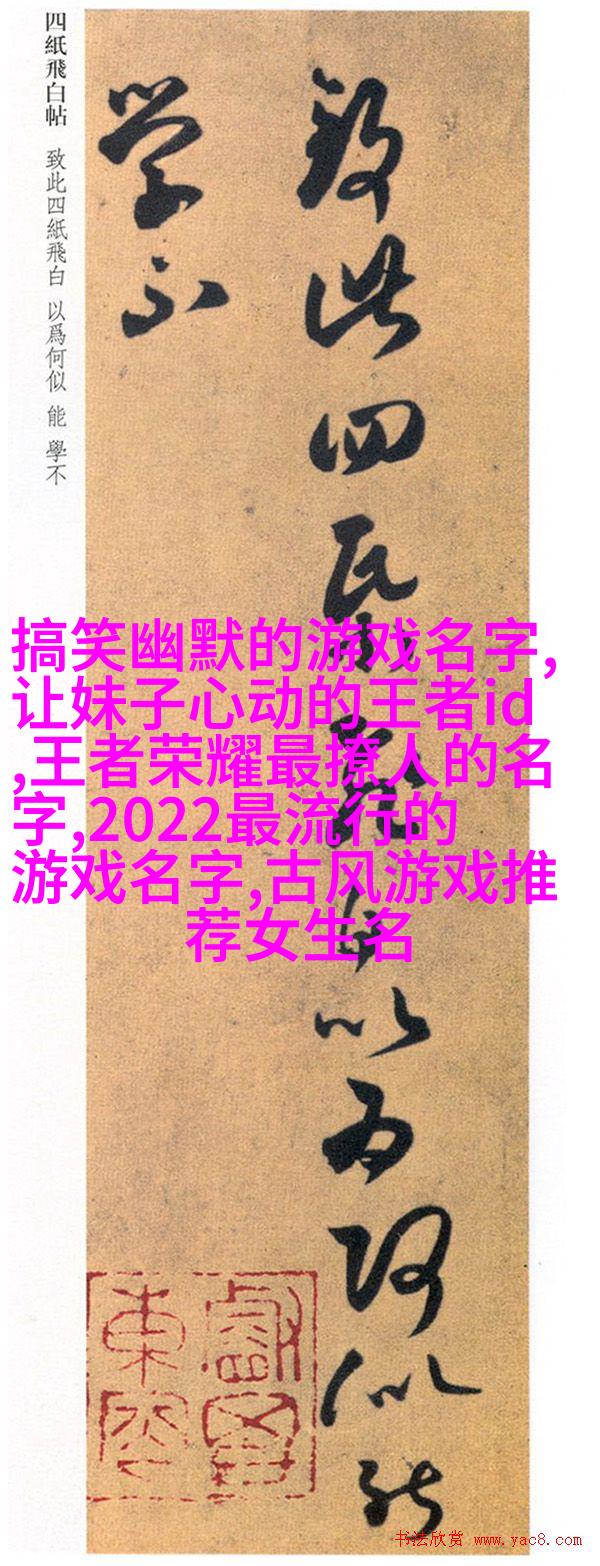 四紙飛白帖 致此四紙飛白 以爲何似 能 學不
致此四紙飛白以为何似能
学不
搞笑幽默的游戏名字,
让妹子心动的王者id
,王者荣耀最撩人的名
字,2022最流行的
游戏名字,古风游戏推
荐女生名
书法欣赏 www.yac8.com